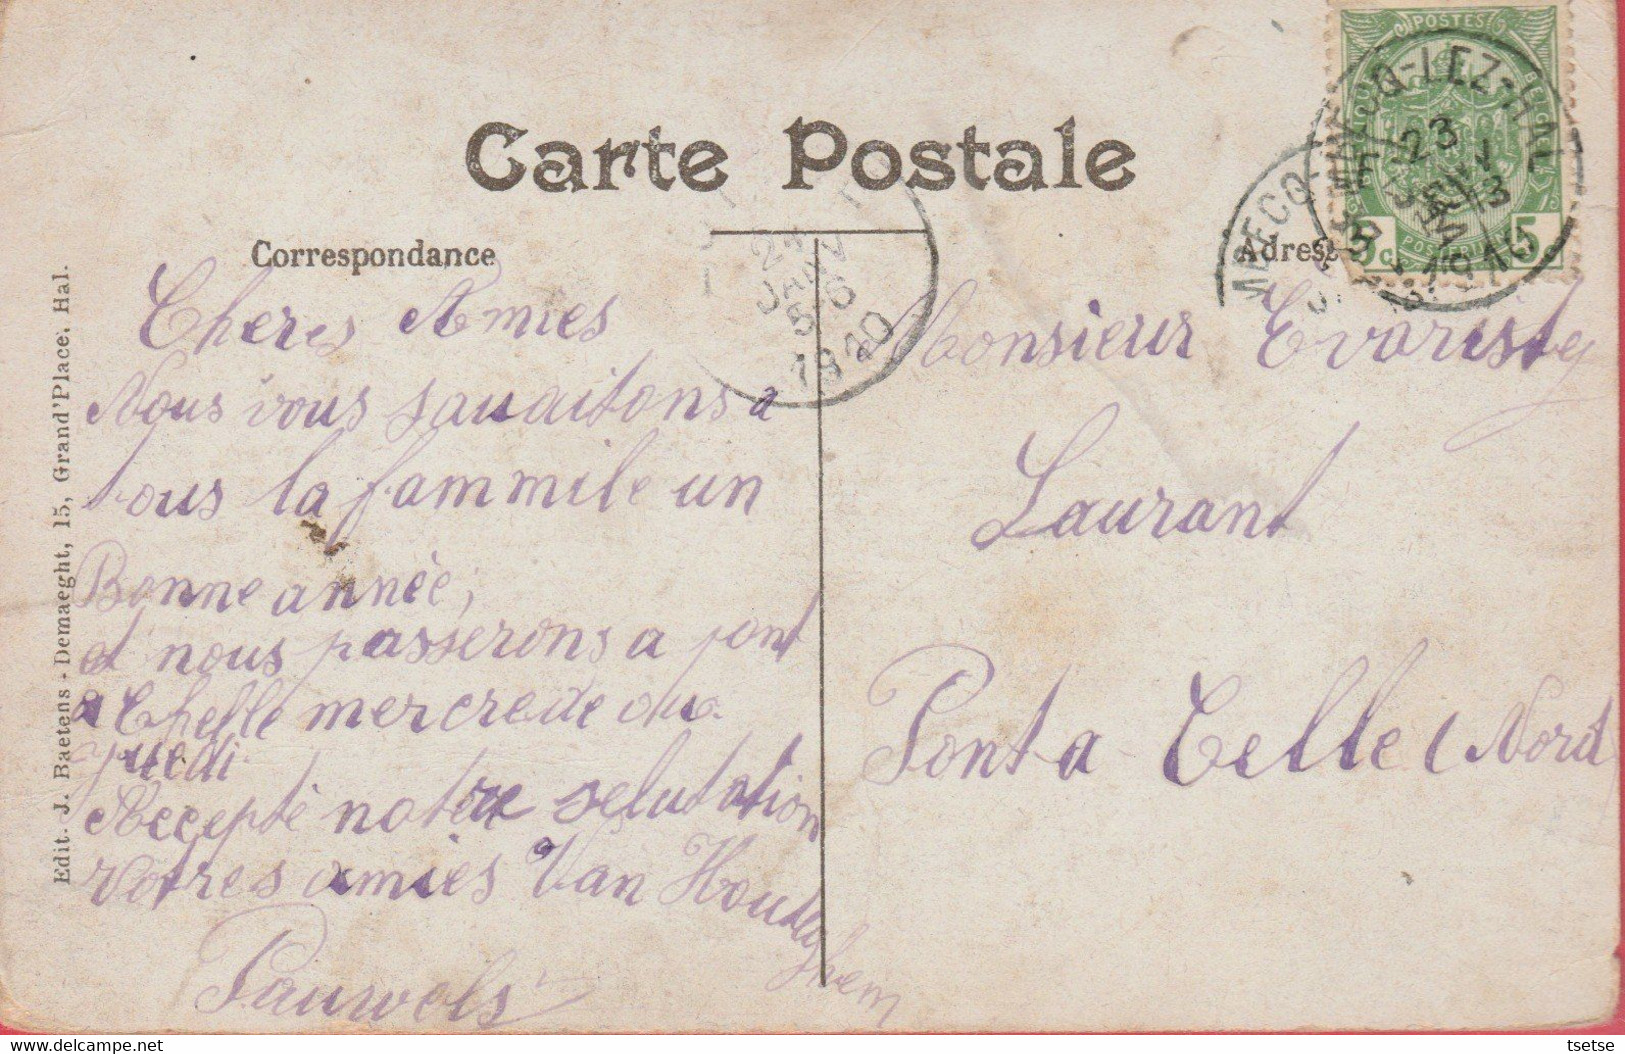 Carte Postale
Correspondance
Adresse
Edit. J. Baetens-Demaeght, 15, Grand'Place. Hal.
POSTES
5 5
LEZ-HAL
23
1910
JANV
5-6
1910
Cheres Amies
Nous vous sauaitons a
tous la fammile un
Bonne année;
et nous passerons a pont
a Chelle mercrede ou
juedi
Accepté notere selutation
votres amies Van Houdeghem
Pauwels
Monsieur Evariste
Laurant
Pont a Celle (Nord)
tsetse